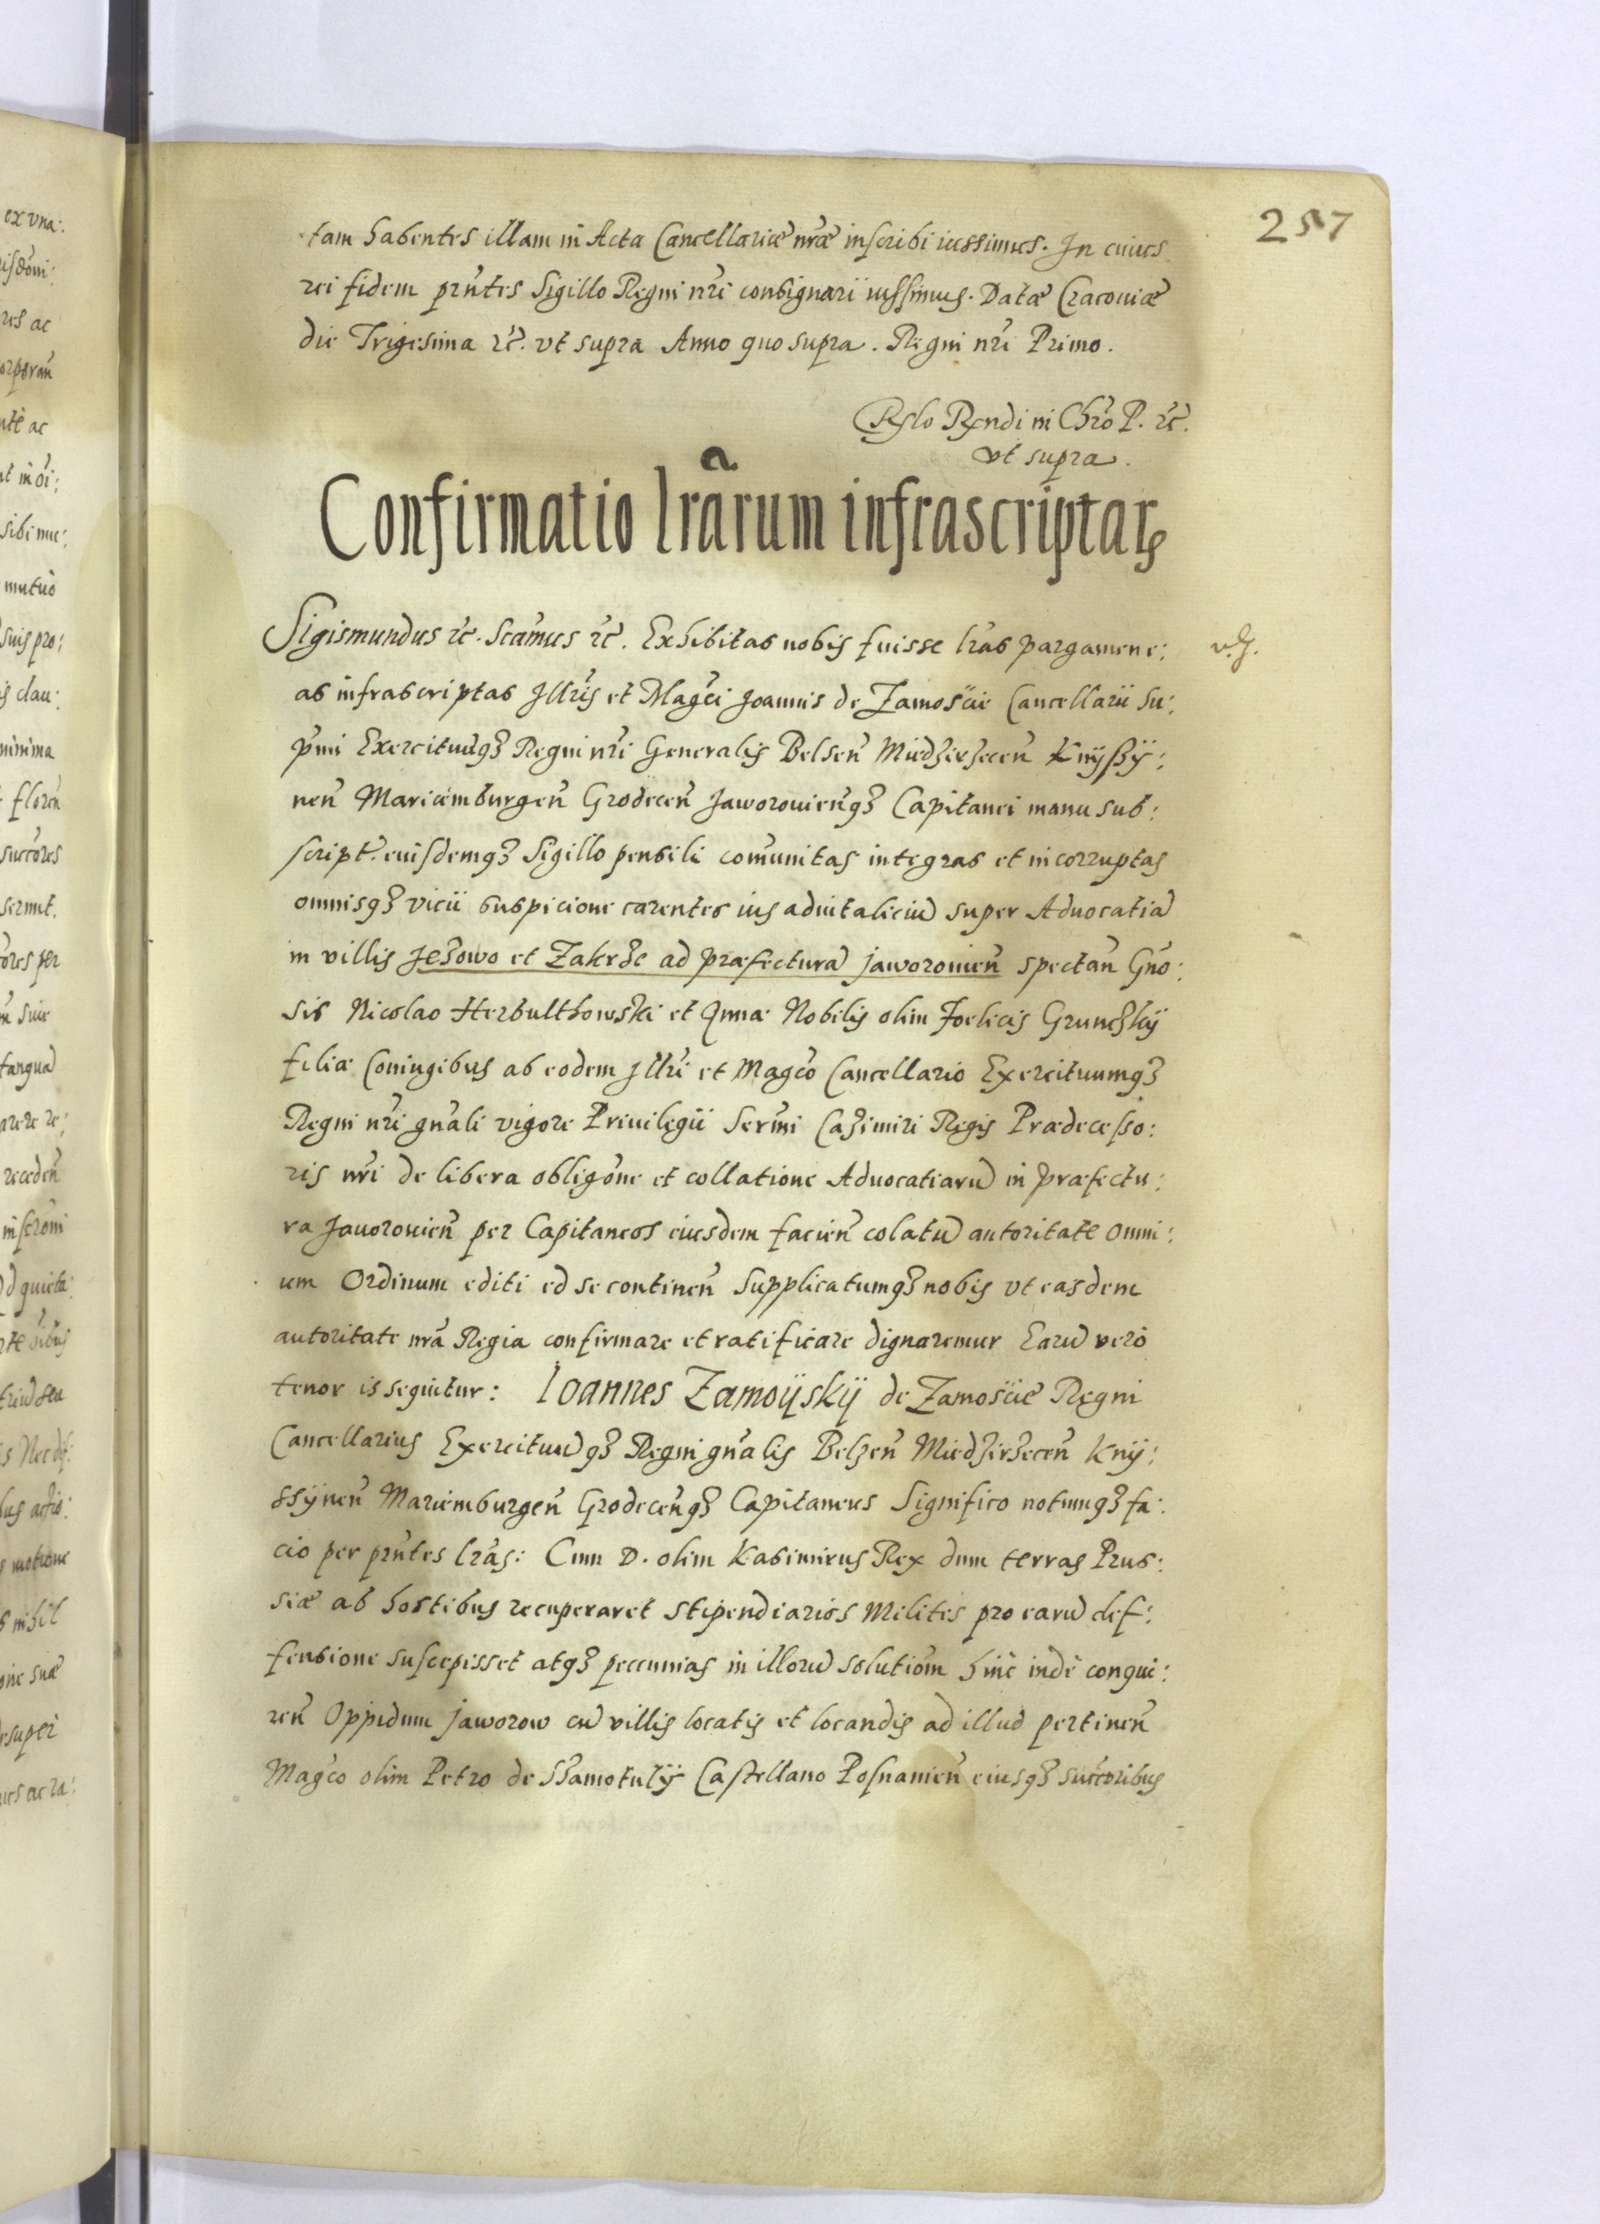 257
tam habentes illam in Acta Cancellariæ nr̃æ inscribi iussimus. In cuius
rei fidem pr̃ntes Sigillo Regni nr̃i consignari iussimus. Datæ Cracoviæ
die Trigesima &c̃. vt supra Anno quo supra. Regni nr̃i Primo.
Rndi in Chr̃o P. &c̃.
vt supra.
Confirmatio lr̃arum infrascriptarꝝ
Sigismundus &c̃. Scam̃us &c̃. Exhibitas nobis fuisse lr̃as pargamene:
as infrascriptas Illr̃is et Mag̃ci Joannis de Zamoscie Cancellarii Su:
p̃mi Exercituũqꝫ Regni nr̃i Generalis Belsen̄ Miedzirzecen̄ Knÿssÿ:
nen̄ Mariæmburgen̄ Grodecen̄ Jaworovien̄qꝫ Capitanei manu sub:
script̃. euisdemqꝫ Sigillo pensili com̃unitas integras et incorruptas
omnisqꝫ vicii suspicione carentes ius aduitaliciũ super Aduocatiã
in villis Jeżowo et Zakrże ad præfecturã Jaworovien̄ spectan̄ Gño:
sis Nicolao Herbulthowski et Annæ Nobilis olim Foelicis Grunczkij
filiæ Coniugibus ab eodem Illr̃i et Mag̃co Cancellario Exercituumqꝫ
Regni nr̃i gñali vigore Privilegii Serm̃i Cazimiri Regis Prædecesso:
ris nr̃i de libera oblig̃one et collatione Aduocatiarũ in præfectu:
ra Javorovien̄ per Capitaneos eiusdem facien̄ colatũ autoritate omni:
um Ordinum editi ed se continen̄ Supplicatumqꝫ nobis vt easdem
autoritate nr̃a Regia confirmare et ratificare dignaremur Earũ vero
tenor is sequitur: Ioannes Zamoÿskÿ de Zamosciæ Regni
Cancellarius Exercituũqꝫ Regni gñalis Belzen̄ Miedzirzecen̄ Knÿ:
ssÿnen̄ Mariemburgen̄ Grodecen̄qꝫ Capitaneus Significo notumqꝫ fa:
cio per pr̃ntes lr̃as: Cum D. olim Kasimirus Rex dum terras Prus:
siæ ab hostibus recuperaret stipendiarios Milites pro earũ def:
fensione suscepisset atqꝫ peccunias in illorũ solutiom̃ hinc inde conqui:
ren̄ Oppidum Jaworow cũ villis locatis et locandis ad illud pertinen̄
Mag̃co olim Petro de Shamotulÿ Castellano Posnanien̄ eiusqꝫ succ̃oribus